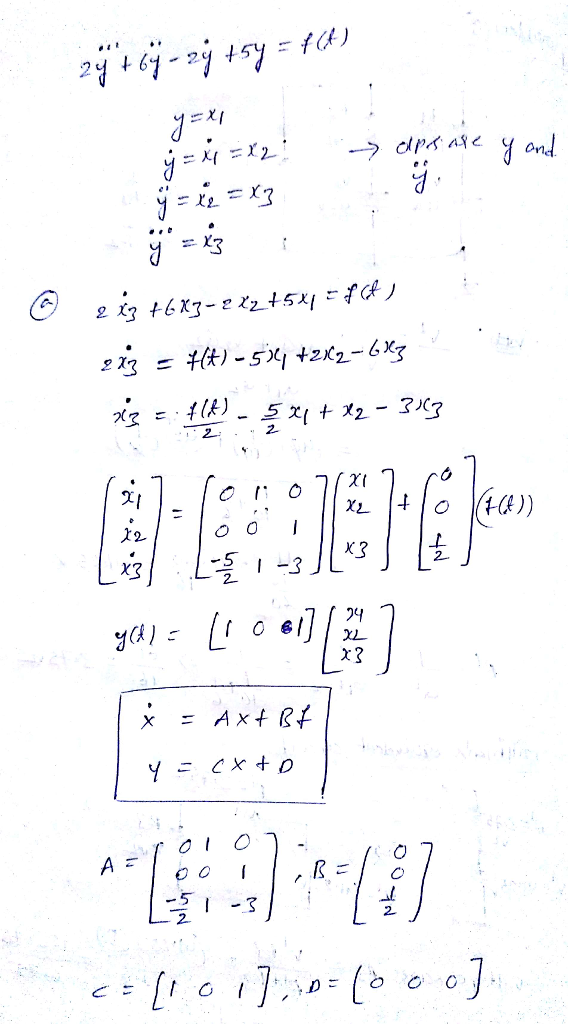 2y⃛ + 6ÿ - 2ẏ + 5y = f(t)
y = x1
ẏ = ẋ1 = x2
ÿ = ẋ2 = x3
y⃛ = ẋ3
→ y and ÿ.
(a) 2ẋ3 + 6x3 - 2x2 + 5x1 = f(t)
2ẋ3 = f(t) - 5x1 + 2x2 - 6x3
ẋ3 = f(t)/2 - 5/2 x1 + x2 - 3x3
[ẋ1; ẋ2; ẋ3] = [0 1 0; 0 0 1; -5/2 1 -3] [x1; x2; x3] + [0; 0; 1/2] (f(t))
y(t) = [1 0 1] [x1; x2; x3]
ẋ = Ax + Bf
y = cx + D
A = [0 1 0; 0 0 1; -5/2 1 -3], B = [0; 0; 1/2]
c = [1 0 1], D = [0 0 0]